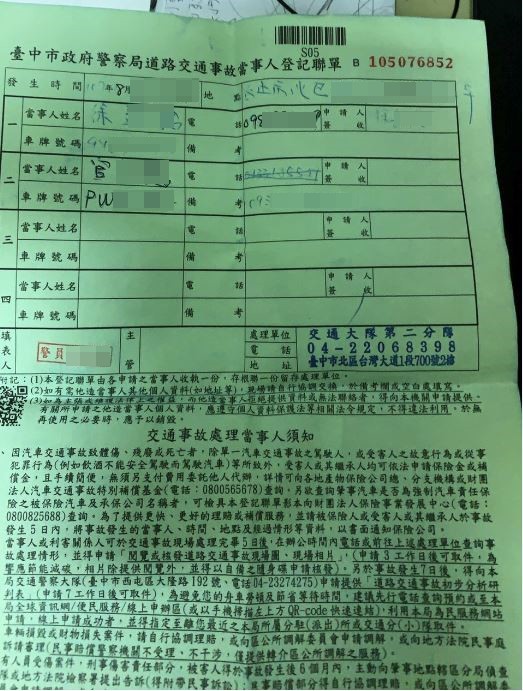 S05
臺中市政府警察局道路交通事故當事人登記聯單 B 105076852
發生時間 年8月 地點
一 當事人姓名 電話 09 申請人簽收
車牌號碼 備考
二 當事人姓名 官 電話 申請人簽收
車牌號碼 PW 備考
三 當事人姓名 電話 申請人簽收
車牌號碼 備考
四 當事人姓名 電話 申請人簽收
車牌號碼 備考
填表人 警員 主管 處理單位 交通大隊第二分隊
電話 04-22068398
地址 臺中市北區台灣大道1段700號2樓
附記：(1)本登記聯單由各申請之當事人收執一份，存根聯一份留存處理單位。
(2)如有需他造當事人其他個人資料(如地址等)，現場請自行協調交換，於備考欄或空白處填寫。
(3)如為主張或維護法律上之權益，而他造當事人拒絕提供資料或無法聯絡者，得向本機關申請提供。
有關所申請之他造當事人個人資料，應遵守個人資料保護法等相關法令規定，不得違法利用。於無
再使用之必要時，應予以銷毀。
交通事故處理當事人須知
、因汽車交通事故致體傷、殘廢或死亡者，除單一汽車交通事故之駕駛人，或受害人之故意行為或從事
犯罪行為(例如飲酒不能安全駕駛而駕駛汽車)等所致外，受害人或其繼承人均可依法申請保險金或補
償金，且手續簡便，無須另支付費用委託他人代辦，詳情可向各地產物保險公司總、分支機構或財團
法人汽車交通事故特別補償基金(電話：0800565678)查詢。另欲查詢肇事汽車是否為強制汽車責任保
險之被保險汽車及承保公司者，可檢具本登記聯單影本向財團法人保險事業發展中心(電話：
0800825688)查詢。為了提供更快、更好的理賠或補償服務，並請被保險人或受害人或其繼承人於事故
發生5日內，將事故發生的當事人、時間、地點及經過情形等資料，以書面通知保險公司。
當事人或利害關係人可於交通事故現場處完畢5日後，在辦公時間內電話或前往上述處理單位查詢事故
處理情形，並得申請「閱覽或核發道路交通事故現場圖、現場相片」(申請3工作日後可取件，為
響應節能減碳，相片除提供閱覽外，並得以自備之隨身碟申請核發)。另於事故發生7日後，得向本
局交通警察大隊(臺中市西屯區大隆路192號，電話04-23274275)申請提供「道路交通事故初步分析研
判表」(申請7工作日後可取件)。為避免您的舟車勞頓及節省等待時間，建議先行電話查詢預約或至本
局全球資訊網/便民服務/線上申辦區(或以手機掃描左上方QR-code快速連結)，利用本局為民服務網站
申請，線上申請成功者，並得指定至離您最近之本局所屬分駐(派出)所或交通分(小)隊取件。
車輛損毀或財物損失案件，請自行協調理賠，或向區公所調解委員會申請調解，或向地方法院民事庭
訴請審理(民事賠償警察機關不受理，不干涉，僅提供轉介區公所調解之服務)。
有人員受傷案件，刑事傷害責任部分，被害人得於事故發生後6個月內，主動向肇事地轄區分局偵查
或地方法院檢察署提出告訴(得附帶民事訴訟)；